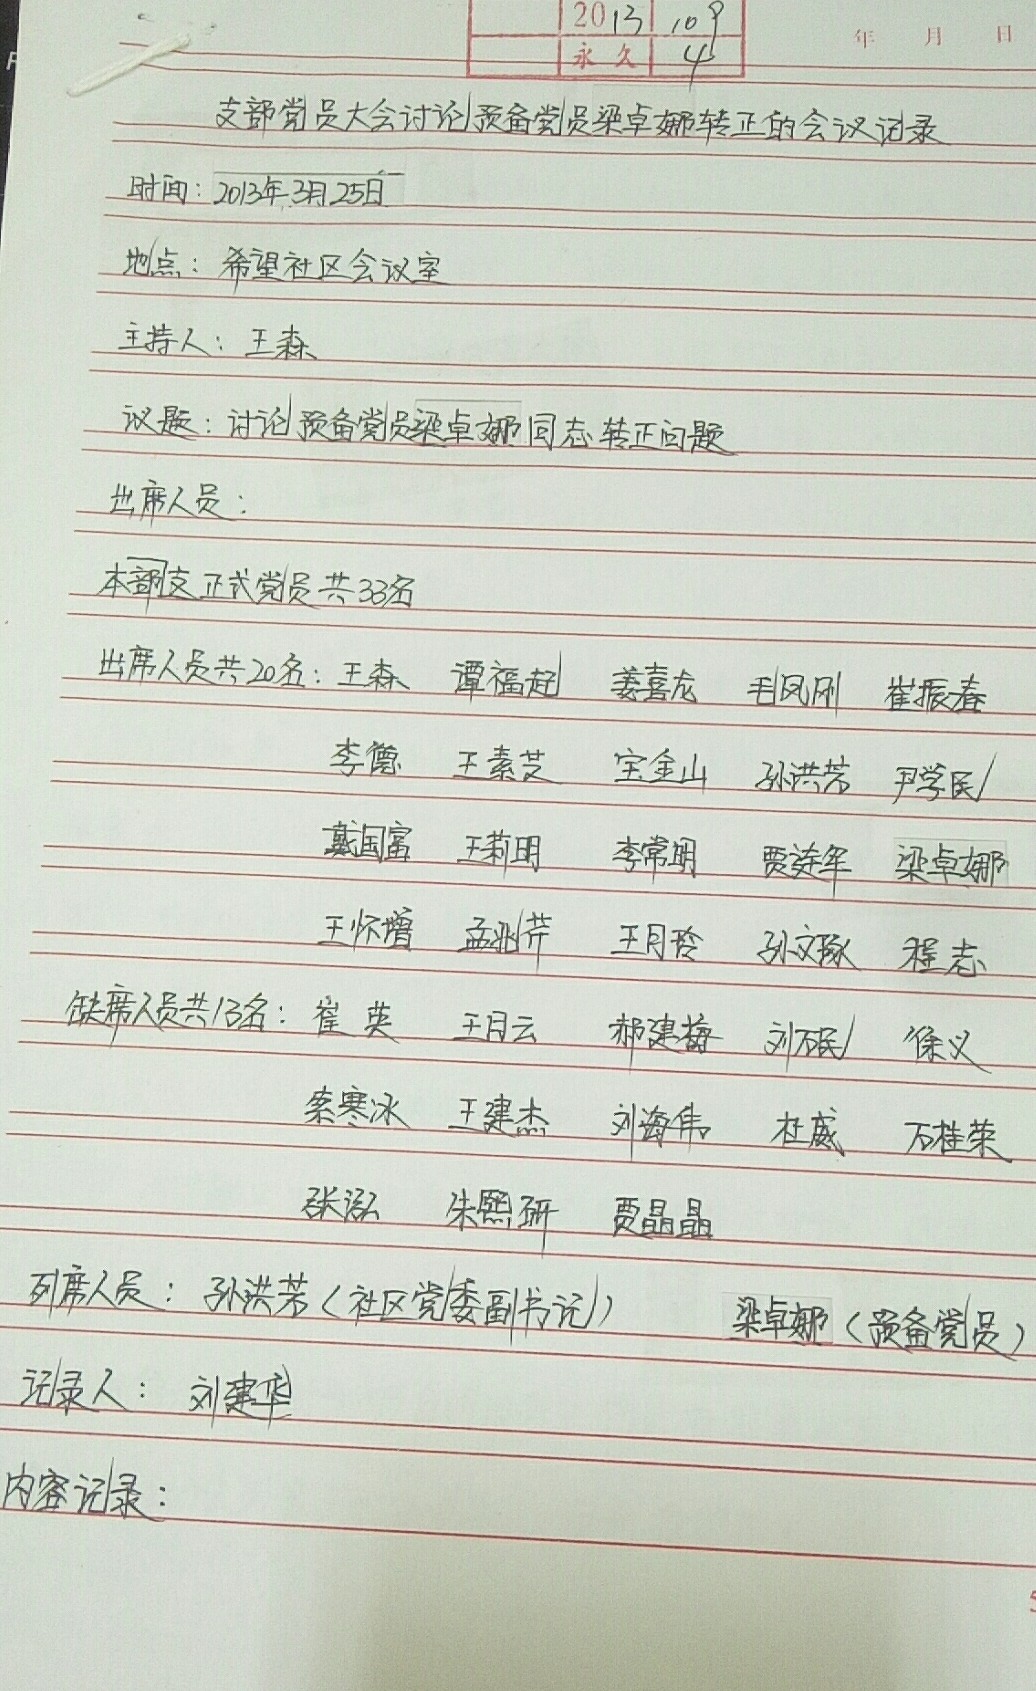 2013 109
永久 4
年 月 日
支部党员大会讨论预备党员梁卓娜转正的会议记录
时间：2013年3月25日
地点：希望社区会议室
主持人：王森
议题：讨论预备党员梁卓娜同志转正问题
出席人员：
本部支正式党员共33名
出席人员共20名：王森 谭福起 姜喜龙 毛凤刚 崔振春
李德 王素芝 宝金山 孙洪芳 尹学民
戴国富 王莉明 李常明 贾连军 梁卓娜
王怀增 孟兆芹 王月玲 孙文琢 程志
缺席人员共13名：崔英 王月云 郝建梅 刘石民 徐义
索寒冰 王建杰 刘海伟 杜威 石桂荣
张泓 朱熙研 贾晶晶
列席人员：孙洪芳（社区党委副书记） 梁卓娜（预备党员）
记录人：刘建华
内容记录：
5